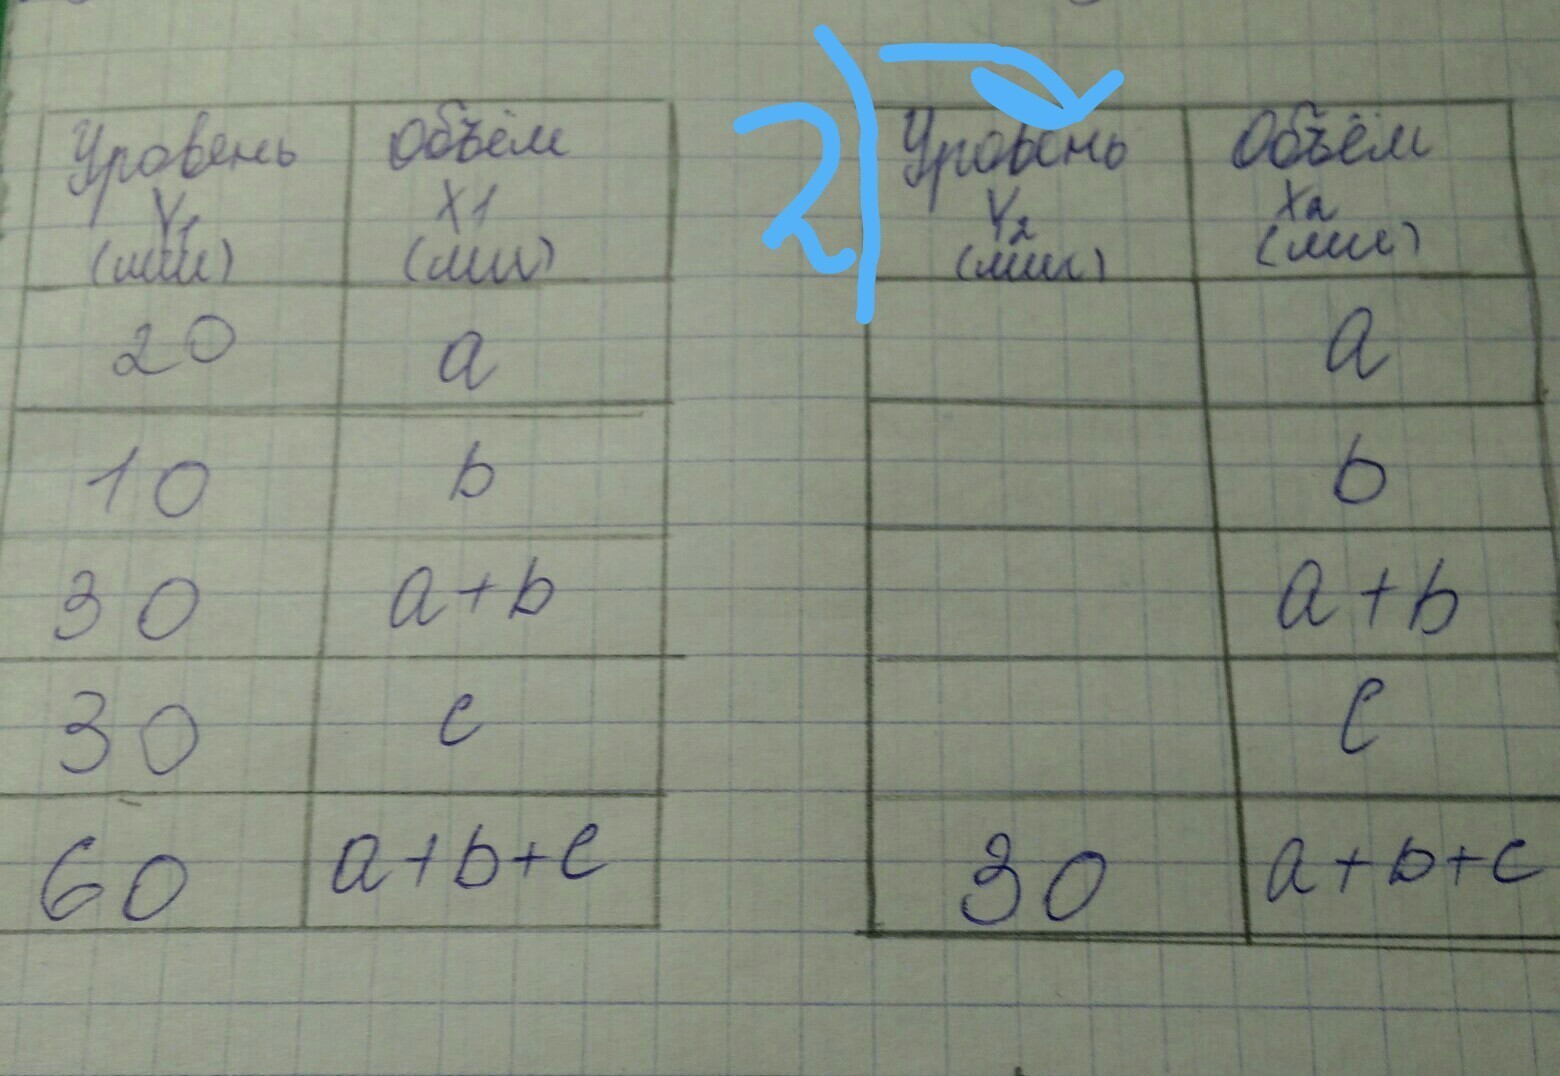 Уровень Y1 (мм)
Объём X1 (мл)
20 a
10 b
30 a+b
30 c
60 a+b+c
2)
Уровень Y2 (мм)
Объём X2 (мл)
a
b
a+b
c
30 a+b+c